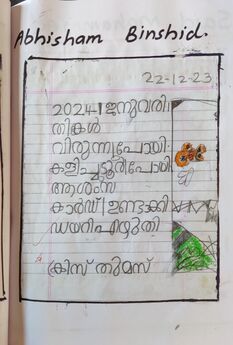 Abhisham Binshid.
22-12-23
2024-ജനുവരി
തിങ്കൾ
വിരുന്നുപോയി
കളിച്ചു ടൂർപോയി
ആശംസ
കാർഡ് ഉണ്ടാക്കി
ഡയറിഎഴുതി
ക്രിസ് തുമസ്